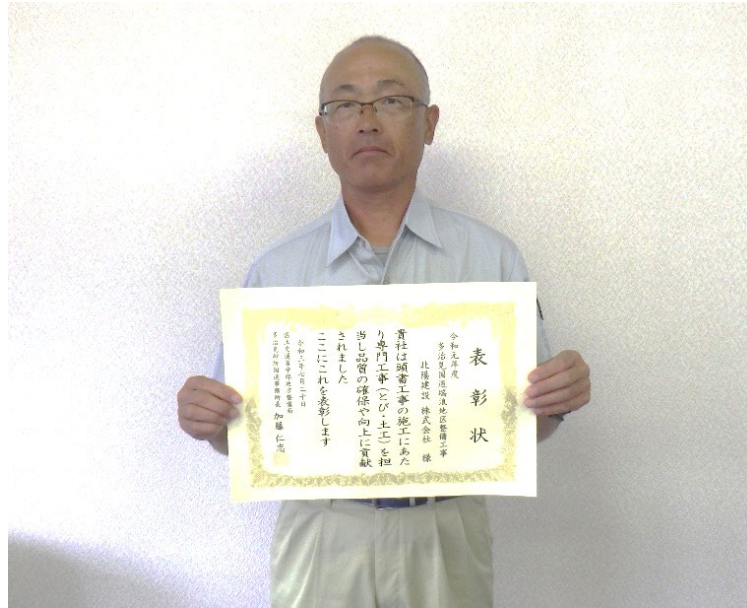 表彰状
令和元年度
多治見国道瑞浪地区整備工事
北陽建設 株式会社 様
貴社は頭書工事の施工にあた
り専門工事（とび・土工）を担
当し品質の確保や向上に貢献
されました
ここにこれを表彰します
令和二年七月二十日
国土交通省中部地方整備局
多治見砂防国道事務所長 加藤仁志